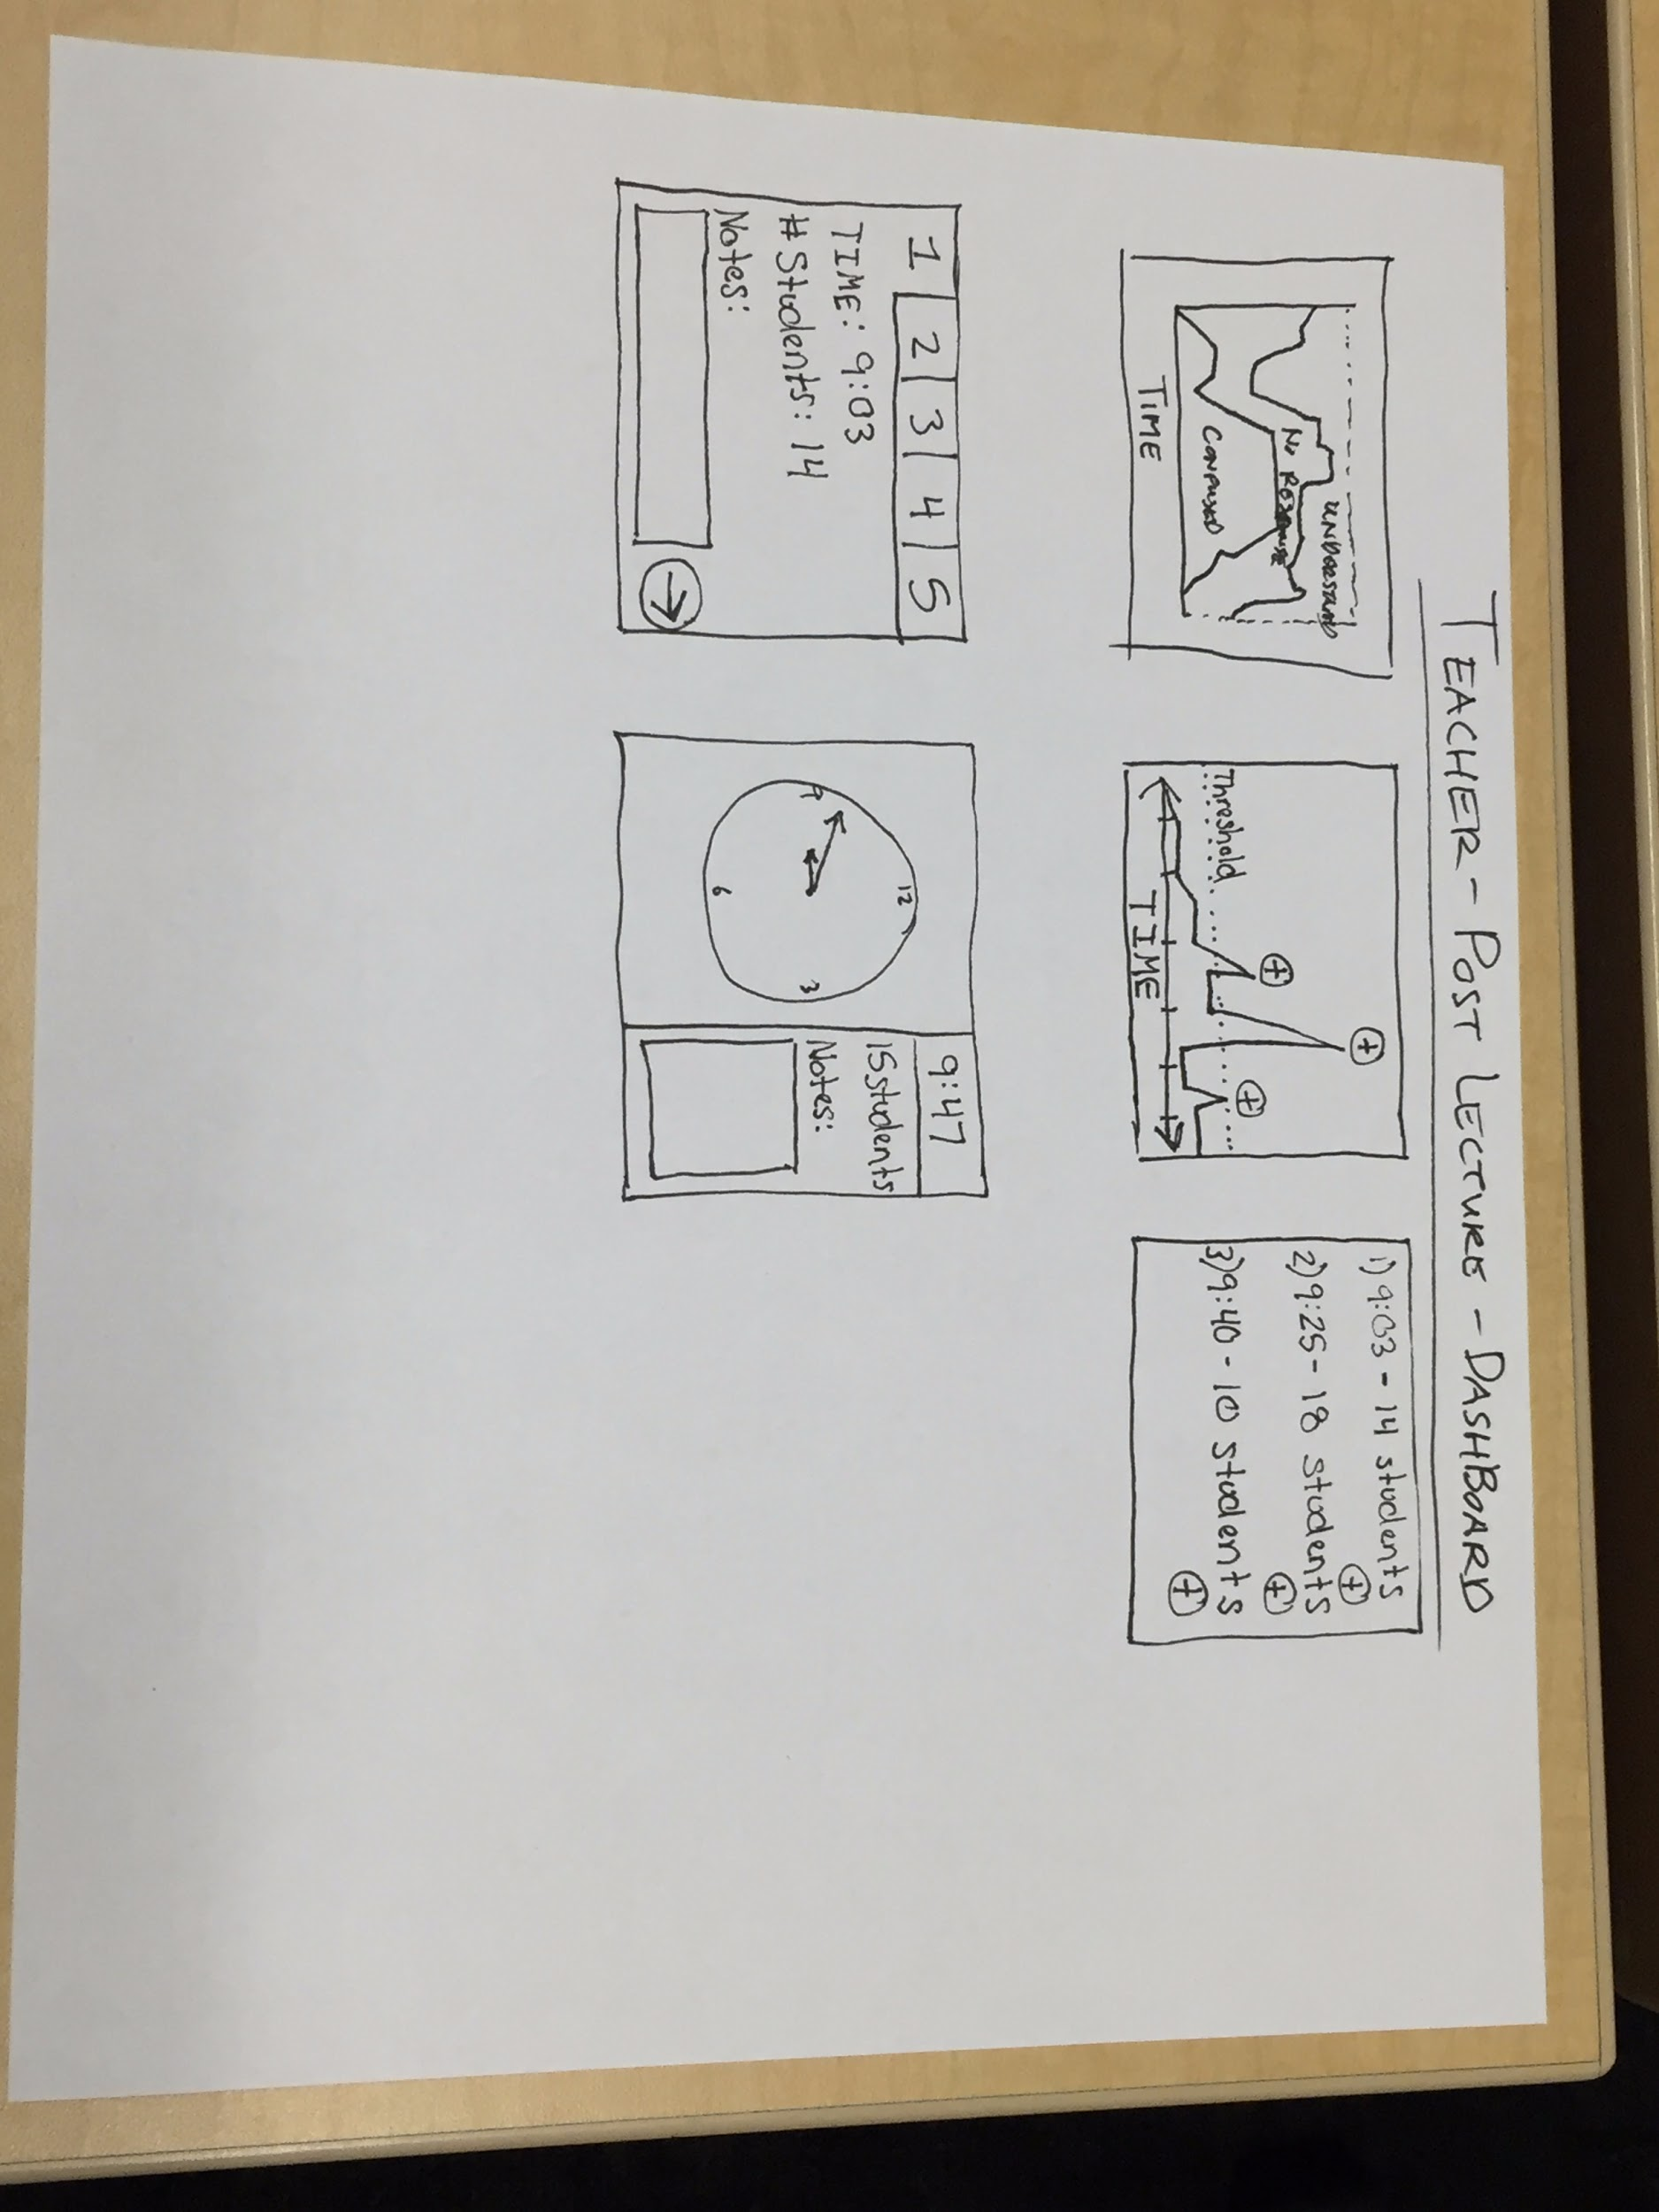 TEACHER - POST LECTURE - DASHBOARD
UNDERSTAND
NO RESPONSE
CONFUSED
TIME
Threshold
TIME
1) 9:03 - 14 students
2) 9:25 - 18 students
3) 9:40 - 10 students
1 2 3 4 5
TIME: 9:03
# Students: 14
Notes:
12
9 3
6
9:47
15 students
Notes: